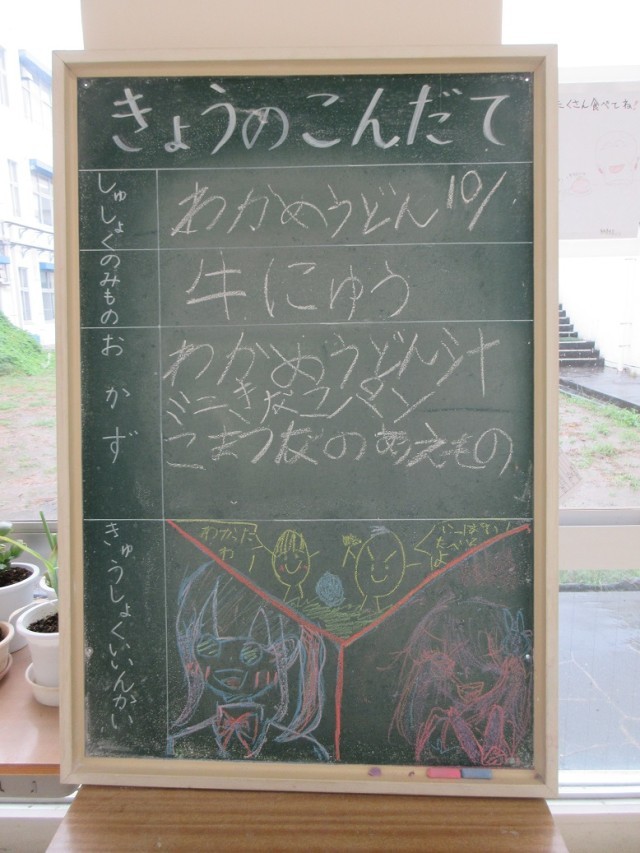 きょうのこんだて
しゅしょく
わかめうどん
のみもの
牛にゅう
おかず
わかめうどん汁
ミニきなコパン
こまつなのあえもの
きゅうしょくいいんかい
わかったわ
いっぱいたべてよ
たくさん食べてね!